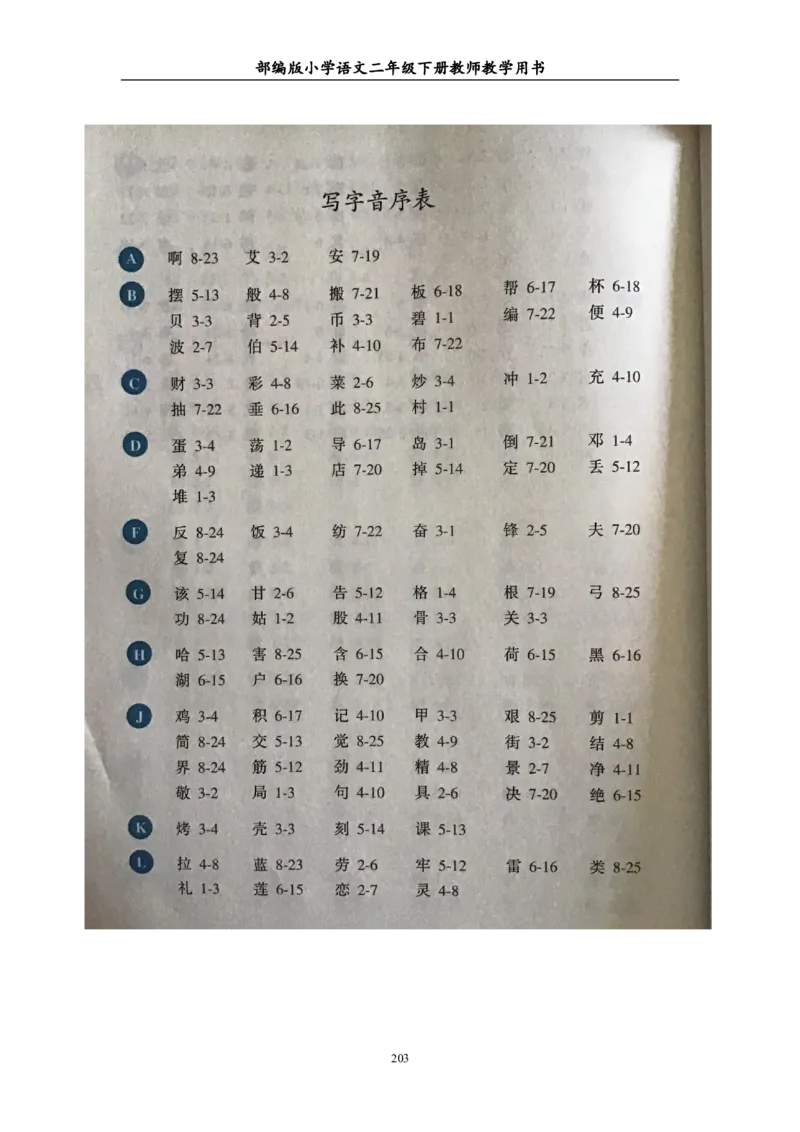 部编版小学语文二年级下册教师教学用书
写字音序表
A 啊 8-23 艾 3-2 安 7-19
B 摆 5-13 般 4-8 搬 7-21 板 6-18 帮 6-17 杯 6-18
贝 3-3 背 2-5 币 3-3 碧 1-1 编 7-22 便 4-9
波 2-7 伯 5-14 补 4-10 布 7-22
C 财 3-3 彩 4-8 菜 2-6 炒 3-4 冲 1-2 充 4-10
抽 7-22 垂 6-16 此 8-25 村 1-1
D 蛋 3-4 荡 1-2 导 6-17 岛 3-1 倒 7-21 邓 1-4
弟 4-9 递 1-3 店 7-20 掉 5-14 定 7-20 丢 5-12
堆 1-3
F 反 8-24 饭 3-4 纺 7-22 奋 3-1 锋 2-5 夫 7-20
复 8-24
G 该 5-14 甘 2-6 告 5-12 格 1-4 根 7-19 弓 8-25
功 8-24 姑 1-2 股 4-11 骨 3-3 关 3-3
H 哈 5-13 害 8-25 含 6-15 合 4-10 荷 6-15 黑 6-16
湖 6-15 户 6-16 换 7-20
J 鸡 3-4 积 6-17 记 4-10 甲 3-3 艰 8-25 剪 1-1
简 8-24 交 5-13 觉 8-25 教 4-9 街 3-2 结 4-8
界 8-24 筋 5-12 劲 4-11 精 4-8 景 2-7 净 4-11
敬 3-2 局 1-3 句 4-10 具 2-6 决 7-20 绝 6-15
K 烤 3-4 壳 3-3 刻 5-14 课 5-13
L 拉 4-8 蓝 8-23 劳 2-6 牢 5-12 雷 6-16 类 8-25
礼 1-3 莲 6-15 恋 2-7 灵 4-8
203